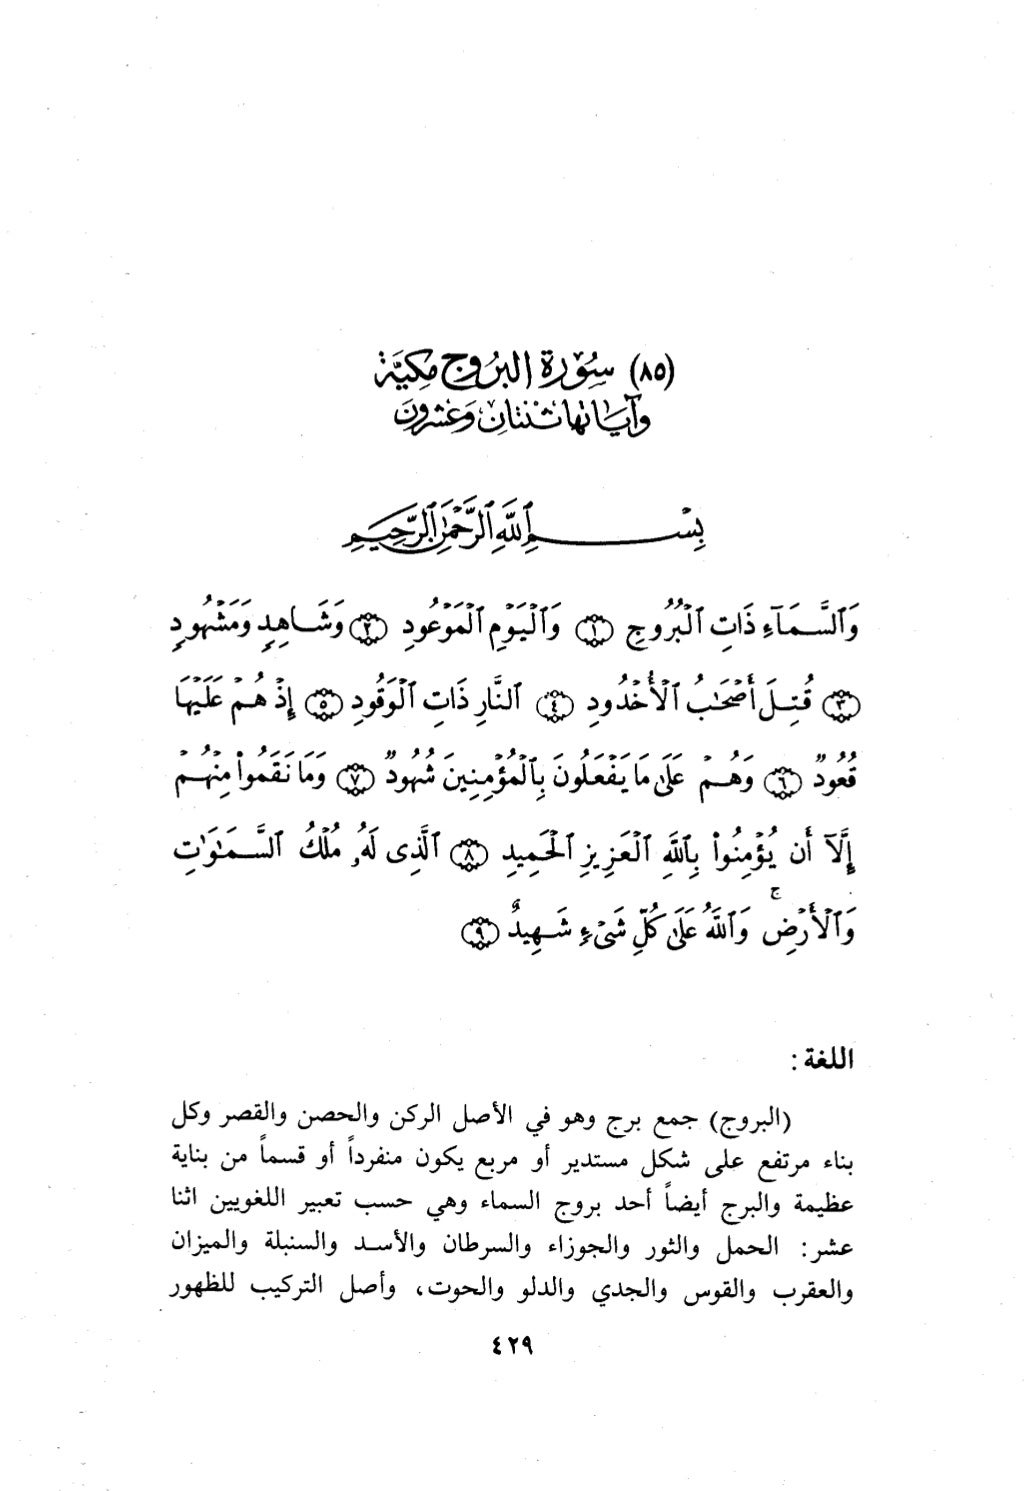 (٨٥) سُوْرَة البُرُوج مكيَّة
وآيَاتها ثنتانِ وَعشرونَ
بِسْمِ ٱللَّهِ ٱلرَّحْمَٰنِ ٱلرَّحِيمِ
وَٱلسَّمَآءِ ذَاتِ ٱلْبُرُوجِ ﴿١﴾ وَٱلْيَوْمِ ٱلْمَوْعُودِ ﴿٢﴾ وَشَاهِدٍ وَمَشْهُودٍ
﴿٣﴾ قُتِلَ أَصْحَٰبُ ٱلْأُخْدُودِ ﴿٤﴾ ٱلنَّارِ ذَاتِ ٱلْوَقُودِ ﴿٥﴾ إِذْ هُمْ عَلَيْهَا
قُعُودٌ ﴿٦﴾ وَهُمْ عَلَىٰ مَا يَفْعَلُونَ بِٱلْمُؤْمِنِينَ شُهُودٌ ﴿٧﴾ وَمَا نَقَمُوا۟ مِنْهُمْ
إِلَّآ أَن يُؤْمِنُوا۟ بِٱللَّهِ ٱلْعَزِيزِ ٱلْحَمِيدِ ﴿٨﴾ ٱلَّذِى لَهُۥ مُلْكُ ٱلسَّمَٰوَٰتِ
وَٱلْأَرْضِ ۚ وَٱللَّهُ عَلَىٰ كُلِّ شَىْءٍ شَهِيدٌ ﴿٩﴾
اللغة :
(البروج) جمع برج وهو في الأصل الركن والحصن والقصر وكل
بناء مرتفع على شكل مستدير أو مربع يكون منفرداً أو قسماً من بناية
عظيمة والبرج أيضاً أحد بروج السماء وهي حسب تعبير اللغويين اثنا
عشر: الحمل والثور والجوزاء والسرطان والأسد والسنبلة والميزان
والعقرب والقوس والجدي والدلو والحوت، وأصل التركيب للظهور
٤٢٩